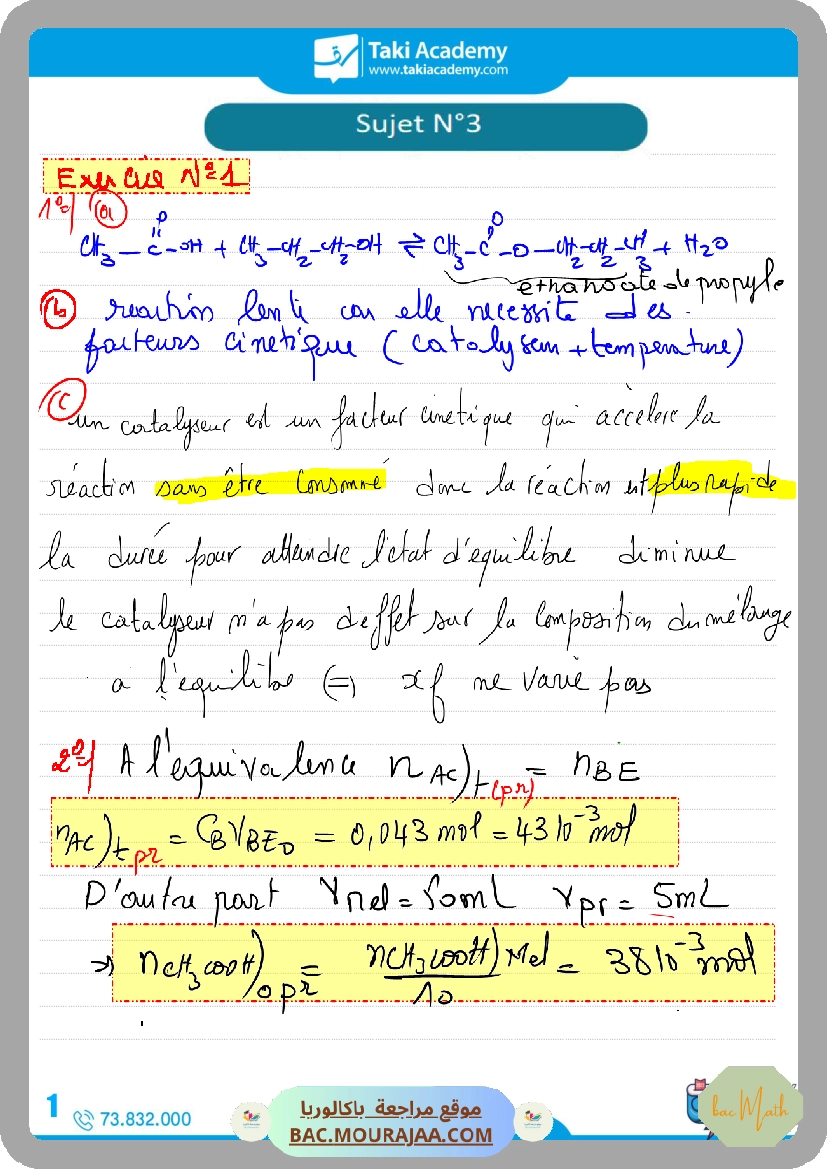 Taki Academy
www.takiacademy.com
Sujet N°3
Exercice N°1
1°/ a
CH₃ — C(=O) — OH + CH₃–CH₂–CH₂–OH ⇌ CH₃–C(=O)–O–CH₂–CH₂–CH₃ + H₂O
ethanoate de propyle
b reaction lente car elle necessite des
facteurs cinetique (catalyseur + temperature)
c un catalyseur est un facteur cinetique qui accèlere la
réaction sans être consommé donc la réaction est plus rapide
la durée pour atteindre l'état d'équilibre diminue
le catalyseur n'a pas d'effet sur la composition du mélange
a l'équilibre ⇔ xf ne varie pas
2°/ A l'equivalence nAC)t(pr) = nBE
nAC)t pr = CBVBE0 = 0,043 mol = 43 10⁻³ mol
D'autre part Vmel = 50mL Vpr = 5mL
⇒ nCH₃COOH)0 pr = nCH₃COOH)Mel / 10 = 38 10⁻³ mol
1
73.832.000
موقع مراجعة باكالوريا
BAC.MOURAJAA.COM
bac Math